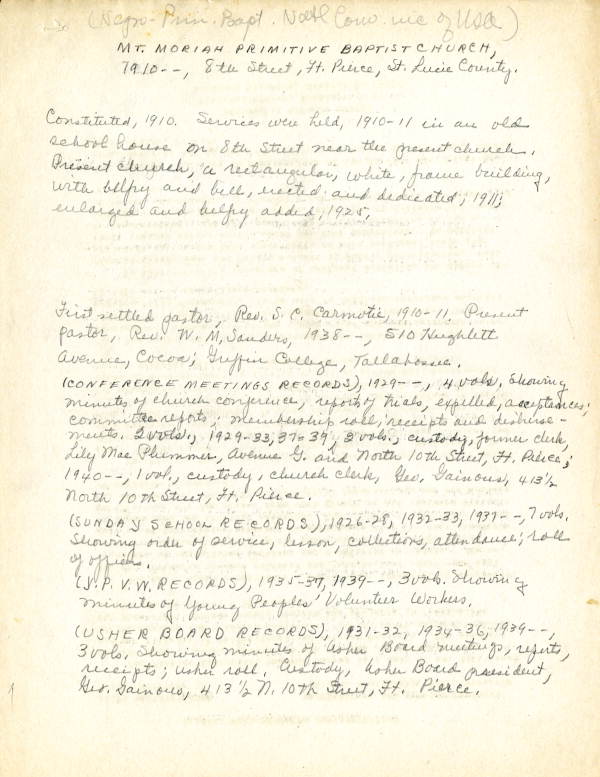 (Negro-Prim. Bapt. Natl Conv. inc of USA)
MT. MORIAH PRIMITIVE BAPTIST CHURCH,
1910--, 8th Street, Ft. Pierce, St. Lucie County.
Constituted, 1910. Services were held, 1910-11 in an old
school house on 8th Street near the present church.
Present church, a rectangular, white, frame building,
with belfry and bell, erected and dedicated, 1911;
enlarged and belfry added, 1925.
First settled pastor, Rev. S. C. Carmotie, 1910-11. Present
pastor, Rev. W. M. Sanders, 1938--, 510 Hughlett
Avenue, Cocoa; Griffin College, Tallahassee.
(CONFERENCE MEETINGS RECORDS), 1929--, 4 vols. Showing
minutes of church conference, reports of trials, expelled, acceptances;
committee reports; membership roll; receipts and disburse-
ments. 2 vols., 1929-33, 37-39, 3 vols., custody, former clerk,
Lily Mae Plummer, Avenue G. and North 10th Street, Ft. Pierce;
1940--, 1 vol., custody, church clerk, Geo. Gainous, 413 1/2
North 10th Street, Ft. Pierce.
(SUNDAY SCHOOL RECORDS), 1926-28, 1932-33, 1937--, 7 vols.
Showing order of service, lesson, collections, attendance; roll
of officers.
(Y. P. V. W. RECORDS), 1935-37, 1939--, 3 vols. Showing
minutes of Young Peoples' Volunteer Workers.
(USHER BOARD RECORDS), 1931-32, 1934-36, 1939--,
3 vols. Showing minutes of Usher Board meetings, reports,
receipts; usher roll. Custody, Usher Board president,
Geo. Gainous, 413 1/2 N. 10th Street, Ft. Pierce.